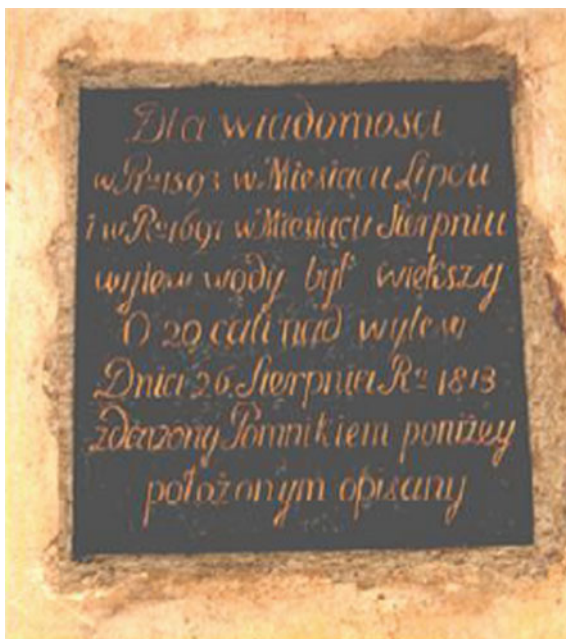 Dla wiadomosci
w Ro 1593 w Miesiącu Lipcu
i w Ro 1697 w Miesiącu Sierpniu
wylew wody był większy
O 20 cali nad wylew
Dnia 26 Sierpnia Ro 1813
zdarzony Pomnikiem poniżey
położonym opisany